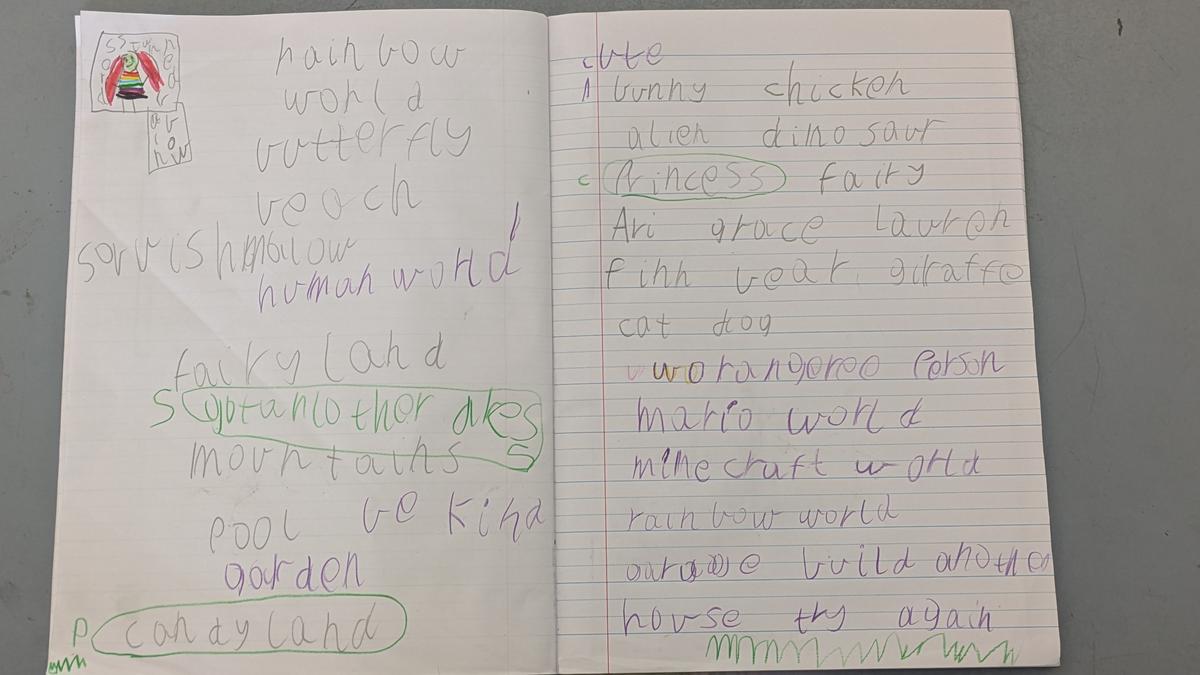 rainbow
world
butterfly
beach
human world
fairy land
s
mountains
pool be kind
garden
P candy land
cute
bunny chicken
alien dinosaur
c Princess fairy
Ari grace Lauren
Finn bear giraffe
cat dog
person
mario world
minecraft world
rainbow world
build another
house try again